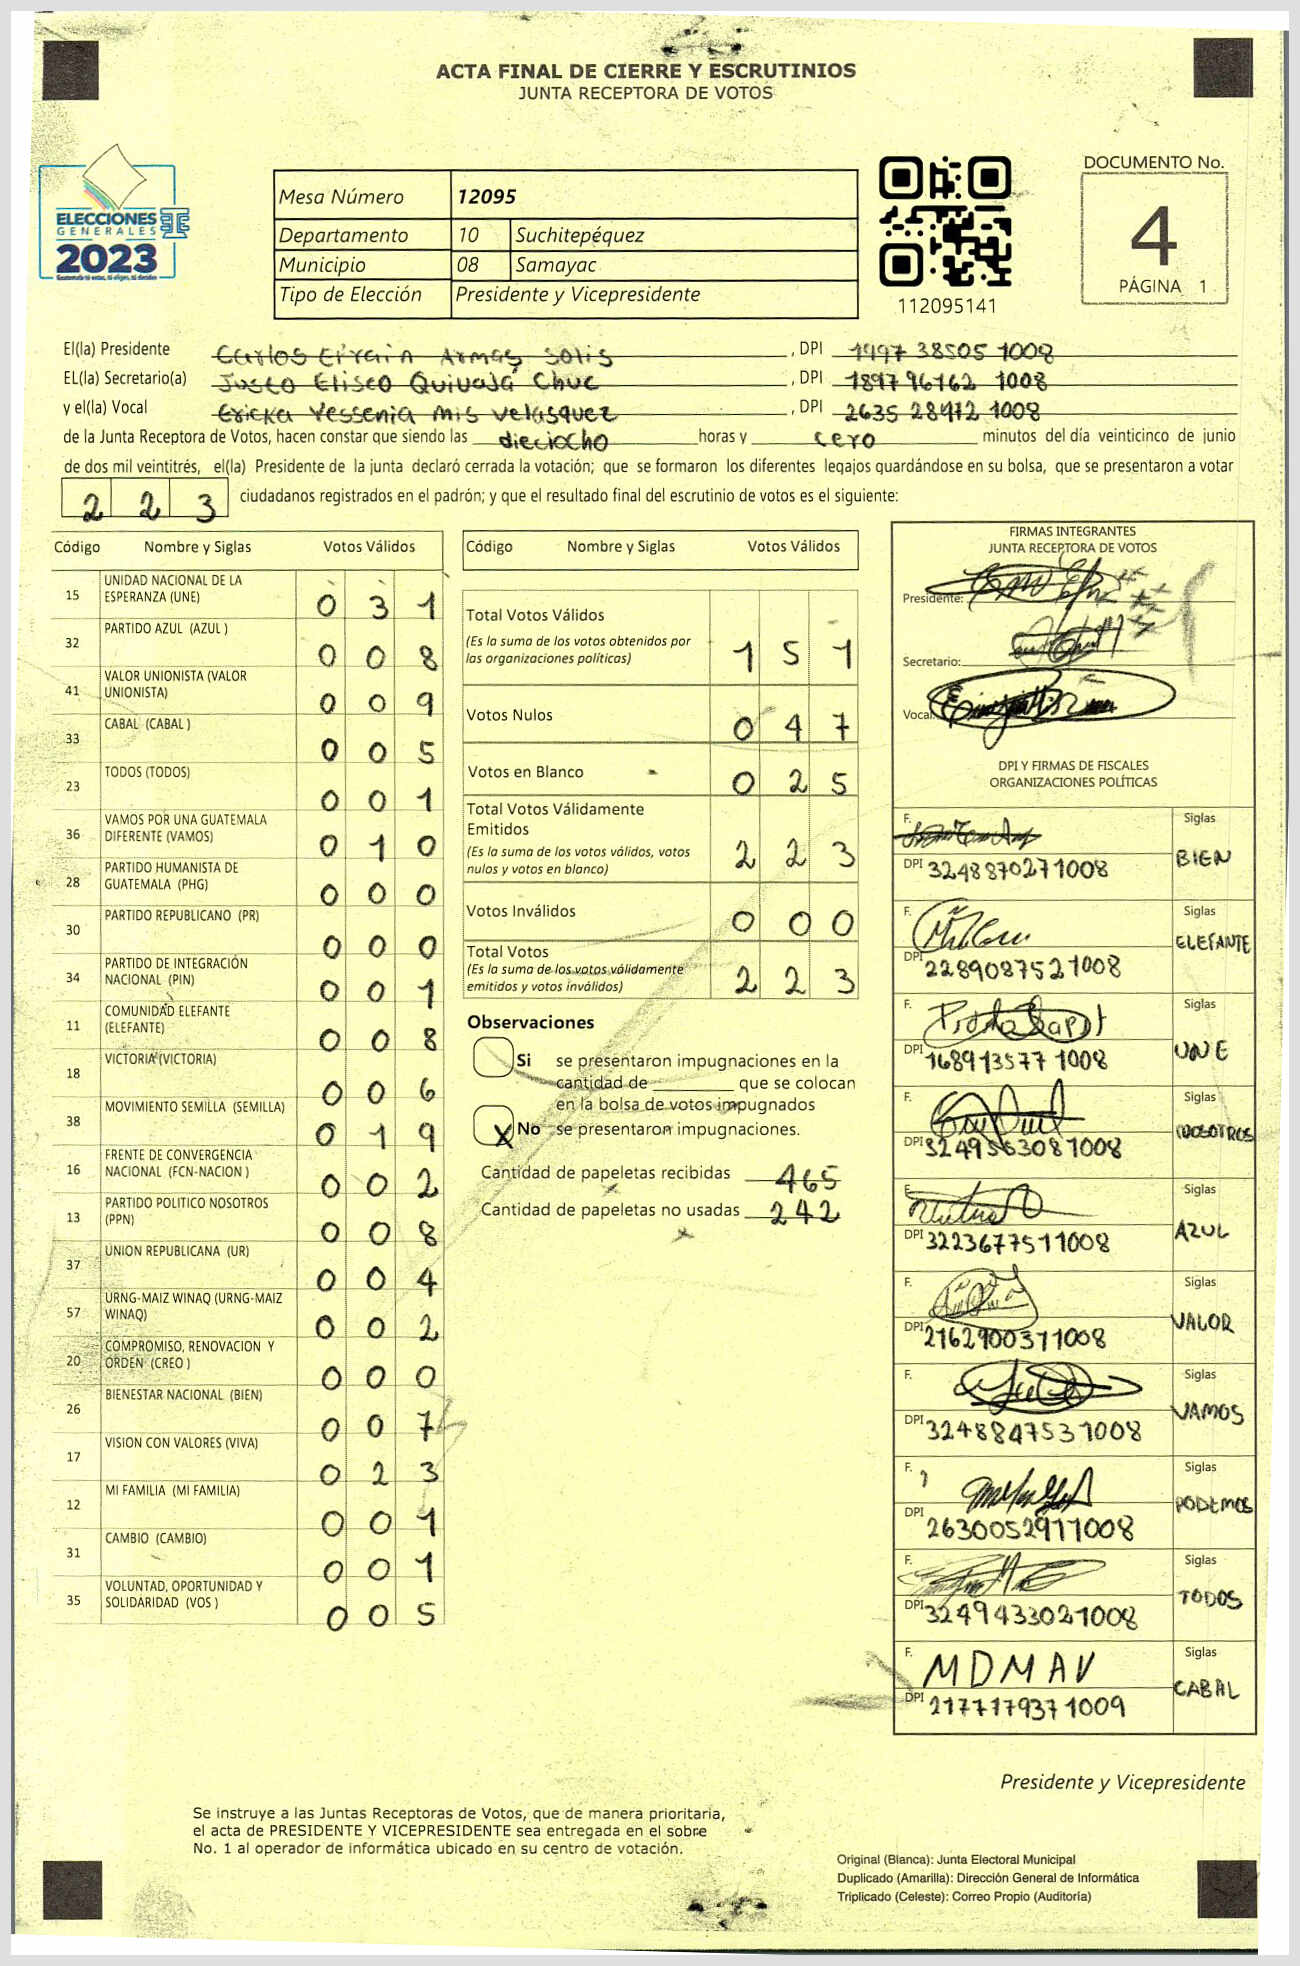 ACTA FINAL DE CIERRE Y ESCRUTINIOS
JUNTA RECEPTORA DE VOTOS
ELECCIONES
GENERALES
2023
Mesa Número 12095
Departamento 10 Suchitepéquez
Municipio 08 Samayac
Tipo de Elección Presidente y Vicepresidente
112095141
DOCUMENTO No.
4
PÁGINA 1
El(la) Presidente Carlos Efrain Armas Solis , DPI 1997 38505 1008
EL(la) Secretario(a) Justo Eliseo Quivajá Chuc , DPI 1897 96162 1008
y el(la) Vocal Ericka Yessenia Mis Velasquez , DPI 2635 28472 1008
de la Junta Receptora de Votos, hacen constar que siendo las dieciocho horas y cero minutos del día veinticinco de junio
de dos mil veintitrés, el(la) Presidente de la junta declaró cerrada la votación; que se formaron los diferentes legajos guardándose en su bolsa, que se presentaron a votar
223 ciudadanos registrados en el padrón; y que el resultado final del escrutinio de votos es el siguiente:
Código Nombre y Siglas Votos Válidos
15 UNIDAD NACIONAL DE LA ESPERANZA (UNE) 031
32 PARTIDO AZUL (AZUL ) 008
41 VALOR UNIONISTA (VALOR UNIONISTA) 009
33 CABAL (CABAL ) 005
23 TODOS (TODOS) 001
36 VAMOS POR UNA GUATEMALA DIFERENTE (VAMOS) 010
28 PARTIDO HUMANISTA DE GUATEMALA (PHG) 000
30 PARTIDO REPUBLICANO (PR) 000
34 PARTIDO DE INTEGRACIÓN NACIONAL (PIN) 001
11 COMUNIDAD ELEFANTE (ELEFANTE) 008
18 VICTORIA (VICTORIA) 006
38 MOVIMIENTO SEMILLA (SEMILLA) 019
16 FRENTE DE CONVERGENCIA NACIONAL (FCN-NACION ) 002
13 PARTIDO POLITICO NOSOTROS (PPN) 008
37 UNION REPUBLICANA (UR) 004
57 URNG-MAIZ WINAQ (URNG-MAIZ WINAQ) 002
20 COMPROMISO, RENOVACION Y ORDEN (CREO ) 000
26 BIENESTAR NACIONAL (BIEN) 007
17 VISION CON VALORES (VIVA) 023
12 MI FAMILIA (MI FAMILIA) 001
31 CAMBIO (CAMBIO) 001
35 VOLUNTAD, OPORTUNIDAD Y SOLIDARIDAD (VOS ) 005
Código Nombre y Siglas Votos Válidos
Total Votos Válidos 151
(Es la suma de los votos obtenidos por
las organizaciones políticas)
Votos Nulos 047
Votos en Blanco 025
Total Votos Válidamente
Emitidos 223
(Es la suma de los votos válidos, votos
nulos y votos en blanco)
Votos Inválidos 000
Total Votos 223
(Es la suma de los votos válidamente
emitidos y votos inválidos)
Observaciones
Si se presentaron impugnaciones en la
cantidad de ________ que se colocan
en la bolsa de votos impugnados
X No se presentaron impugnaciones.
Cantidad de papeletas recibidas 465
Cantidad de papeletas no usadas 242
FIRMAS INTEGRANTES
JUNTA RECEPTORA DE VOTOS
Presidente:
Secretario:
Vocal:
DPI Y FIRMAS DE FISCALES
ORGANIZACIONES POLÍTICAS
F. Siglas
DPI 3248870271008 BIEN
F. Siglas
DPI 2289087521008 ELEFANTE
F. Siglas
DPI 1689135771008 UNE
F. Siglas
DPI 3249563081008 NOSOTROS
F. Siglas
DPI 3223677511008 AZUL
F. Siglas
DPI 2162900371008 VALOR
F. Siglas
DPI 3248847531008 VAMOS
F. Siglas
DPI 2630052971008 PODEMOS
F. Siglas
DPI 3249433021008 TODOS
F. MDMAV Siglas
DPI 2177179371009 CABAL
Presidente y Vicepresidente
Se instruye a las Juntas Receptoras de Votos, que de manera prioritaria,
el acta de PRESIDENTE Y VICEPRESIDENTE sea entregada en el sobre
No. 1 al operador de informática ubicado en su centro de votación.
Original (Blanca): Junta Electoral Municipal
Duplicado (Amarilla): Dirección General de Informática
Triplicado (Celeste): Correo Propio (Auditoría)